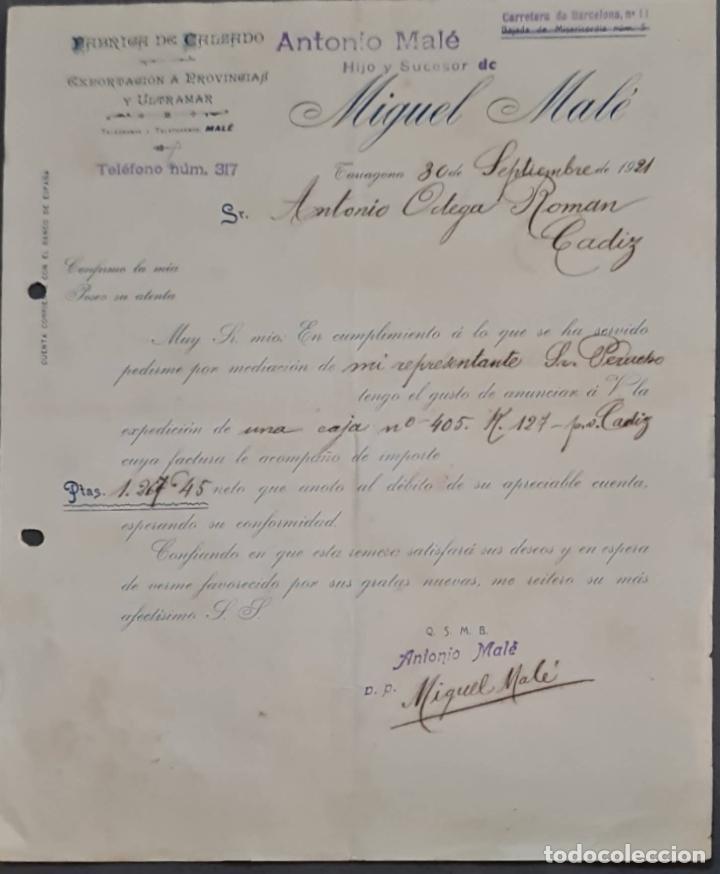 Carretera de Barcelona, nº 11
Bajada de Misericordia núm. 5
FABRICA DE CALZADO
EXPORTACIÓN A PROVINCIAS
Y ULTRAMAR
TELEGRAMAS Y TELEFONEMAS MALÉ
Teléfono núm. 317
Antonio Malé
Hijo y Sucesor de
Miguel Malé
Tarragona 30 de Septiembre de 1921
Sr. Antonio Odega Roman
Cadiz
CUENTA CORRIENTE CON EL BANCO DE ESPAÑA
Confirmo la mía
Poseo su atenta
Muy Sr. mío: En cumplimiento á lo que se ha servido
pedirme por mediación de mi representante Sr. Perucho
tengo el gusto de anunciar á V. la
expedición de una caja nº 405. K. 127 - p.v. Cadiz
cuya factura le acompaño de importe
Ptas. 1.267'45 neto que anoto al débito de su apreciable cuenta,
esperando su conformidad.
Confiando en que esta remesa satisfará sus deseos y en espera
de verme favorecido por sus gratas nuevas, me reitero su más
afectísimo S. S.
Q. S. M. B.
Antonio Malé
P. P. Miguel Malé
todocoleccion.net